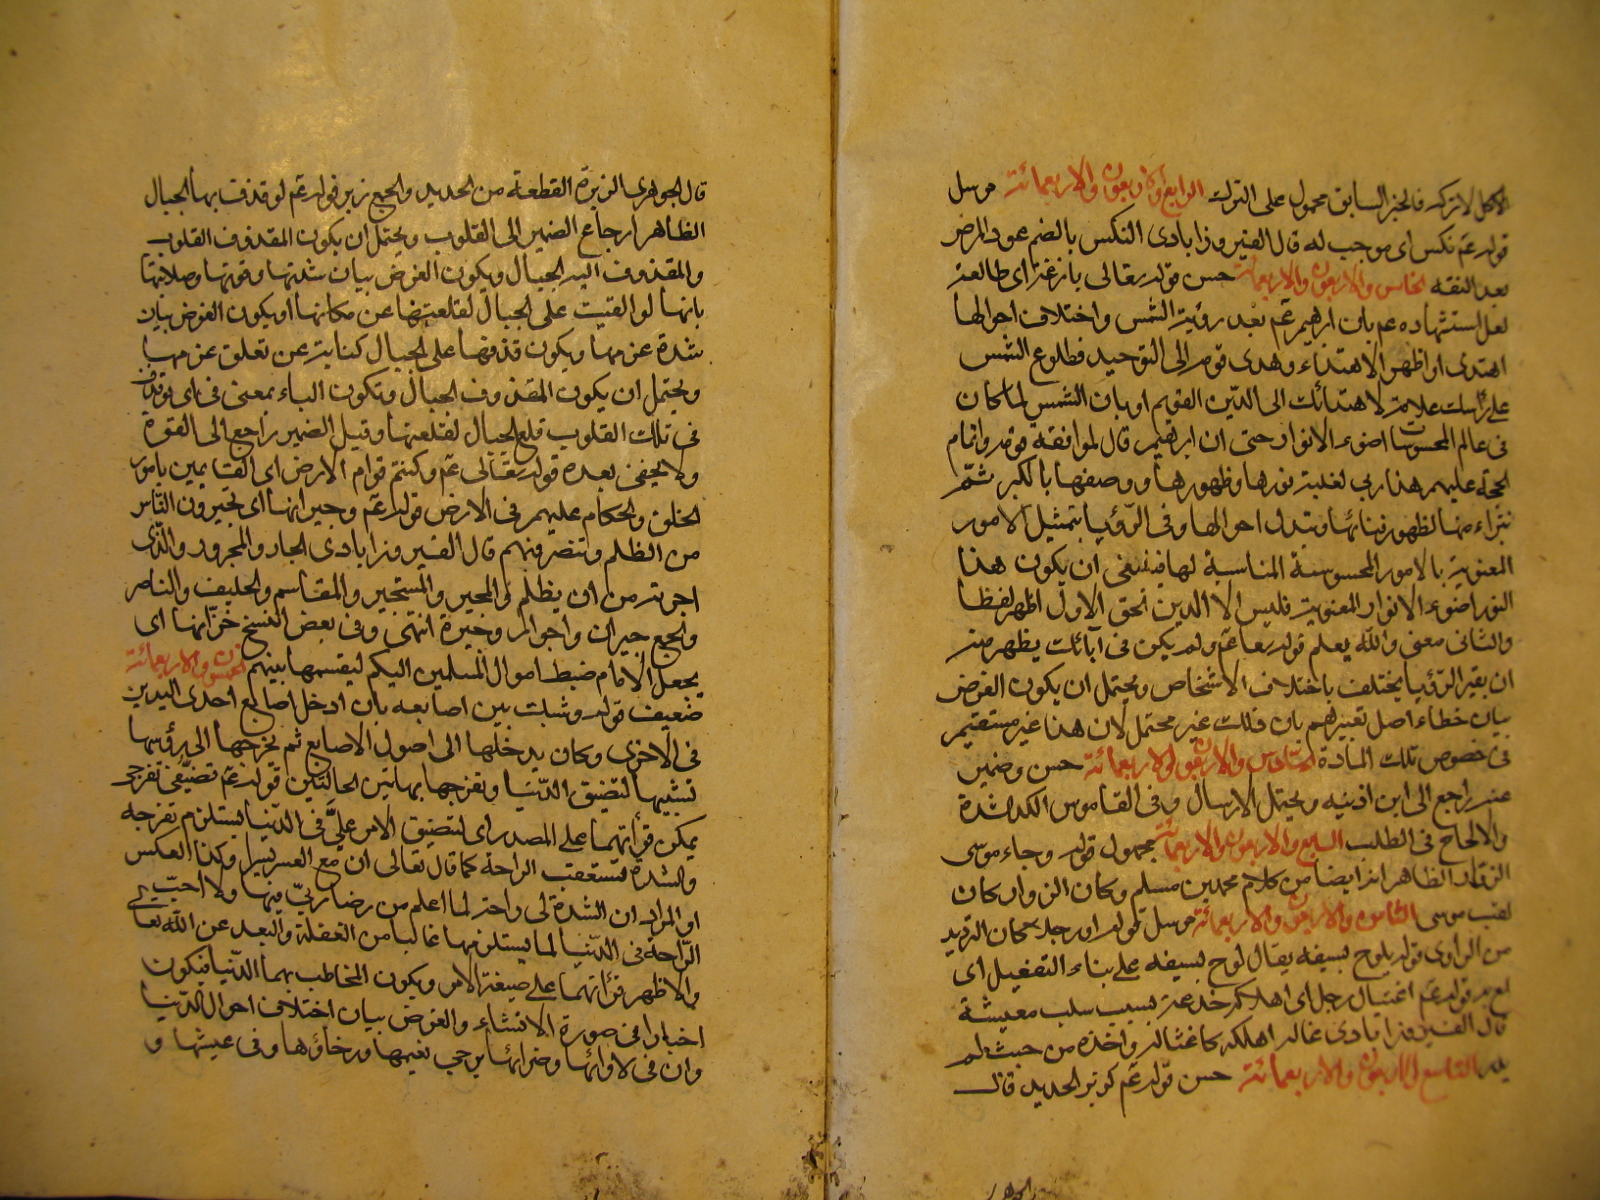 الاكل لا تركه فالخبر السابق محمول على الترك الرابع والاربعون والاربعمائة مرسل
قوله عم نكس اى موجب له قال الفيروزابادى النكس بالضم عود المرض
بعد النقه الخامس والاربعون والاربعمائة حسن قوله تعالى بازغة اى طالعة
لعل استشهاده عم بان ابرهيم عم بعد رؤية الشمس واختلاف احوالها
اهتدى او اظهر الاهتداء وهدى قومه الى التوحيد فطلوع الشمس
على راسك علامة لاهتدائك الى الدين القويم او بان الشمس لما كان
فى عالم المحسوسات اضوء الانوار حتى ان ابرهيم قال لموافقة قومه واتمام
الحجة عليهم هذا ربى لغلبة نورها وظهورها ووصفها بالكبر ثم
تبراء منها لظهور فنائها وتبدل احوالها وفى الرؤيا بتمثيل الامور
المعنوية بالامور المحسوسة المناسبة لها فينبغى ان يكون هذا
النور اضوء الانوار المعنوية فليس الا الدين الحق الاول اظهر لفظا
والثانى معنى والله يعلم قوله عم ولم يكن فى آبائك يظهر منه
ان تعبير الرؤيا يختلف باختلاف الاشخاص ويحتمل ان يكون الغرض
بيان خطاء اصل تعبيرهم بان ذلك غير محتمل لان هذا غير مستقيم
فى خصوص تلك المادة السادس والاربعون والاربعمائة حسن وضمير
عنه راجع الى ابن اذينه ويحتمل الارسال وفى القاموس الكلد الشدة
والالحاح فى الطلب السابع والاربعون والاربعمائة مجهول قوله وجاء موسى
الزوار الظاهر انه ايضا من كلام محمد بن مسلم وكان الزوار كان
لقب موسى الثامن والاربعون والاربعمائة مرسل قوله او رجل كان الترديد
من الراوى قوله يلوح بسيفه يقال لوح بسيفه على بناء التفعيل اى
لمع به قوله عم اغتال رجل اى اهلاكهم خدعة بسبب سلب معيشة
قال الفيروزابادى غاله اهلكه كاغتاله واخذه من حيث لم
يدر التاسع والاربعون والاربعمائة حسن قوله عم كزبر الحديد قال
الجوهرى
قال الجوهرى الزبرة القطعة من الحديد والجمع زبر قوله عم لو قذف بها الجبال
الظاهر ارجاع الضمير الى القلوب ويحتمل ان يكون المقذوف القلوب
والمقذوف اليه الجبال ويكون الغرض بيان شدتها وقوتها وصلابتها
بانها لو القيت على الجبال لقلعتها عن مكانها او يكون الغرض بيان
شدة عزمها ويكون قذفها على الجبال كناية عن تعلق عزمها
ويحتمل ان يكون المقذوف الجبال وتكون الباء بمعنى فى اى لو قذف
فى تلك القلوب قلع الجبال لقلعتها وقيل الضمير راجع الى القوة
ولا يخفى بعده قوله تعالى عم وكنتم قوام الارض اى القائمين بامور
الخلق والحكام عليهم فى الارض قوله عم وجيرانها اى تجيرون الناس
من الظلم وتنصرونهم قال الفيروزابادى الجار والمجرور والذى
اجرته من ان يظلم والمجير والمستجير والمقاسم والحليف والناصر
والجمع جيران واجوار وجيرة انتهى وفى بعض النسخ خزانها اى
يجعل الامام ضبط اموال المسلمين اليكم لتقسمها بينهم الخمسون والاربعمائة
ضعيف قوله وشبك بين اصابعه بان ادخل اصابع احدى اليدين
فى الاخرى وكان يدخلها الى اصول الاصابع ثم يخرجها الى رؤسها
تشبيها لتضيق الدنيا وتفرجها بهاتين الحالتين قوله عم تضيقى تفرجى
يمكن قرأتهما على المصدر اى لتضيق الامر على فى الدنيا يستلزم تفرجه
والشدة تستعقب الراحة كما قال تعالى ان مع العسر يسرا وكذا العكس
او المراد ان الشدة لى واحد لما اعلم من رضا ربى منها ولا احب
الراحة فى الدنيا لما يستلزمها غالبا من الغفلة والبعد عن الله تعالى
والاظهر قرأتهما على صيغة الامر ويكون المخاطب بهما الدنيا فيكون
اخبارا فى صورة الانشاء والغرض بيان اختلاف احوال الدنيا
وان فى لاوائها وضرائها يرجى نعيمها ورخاؤها وفى عيشها و